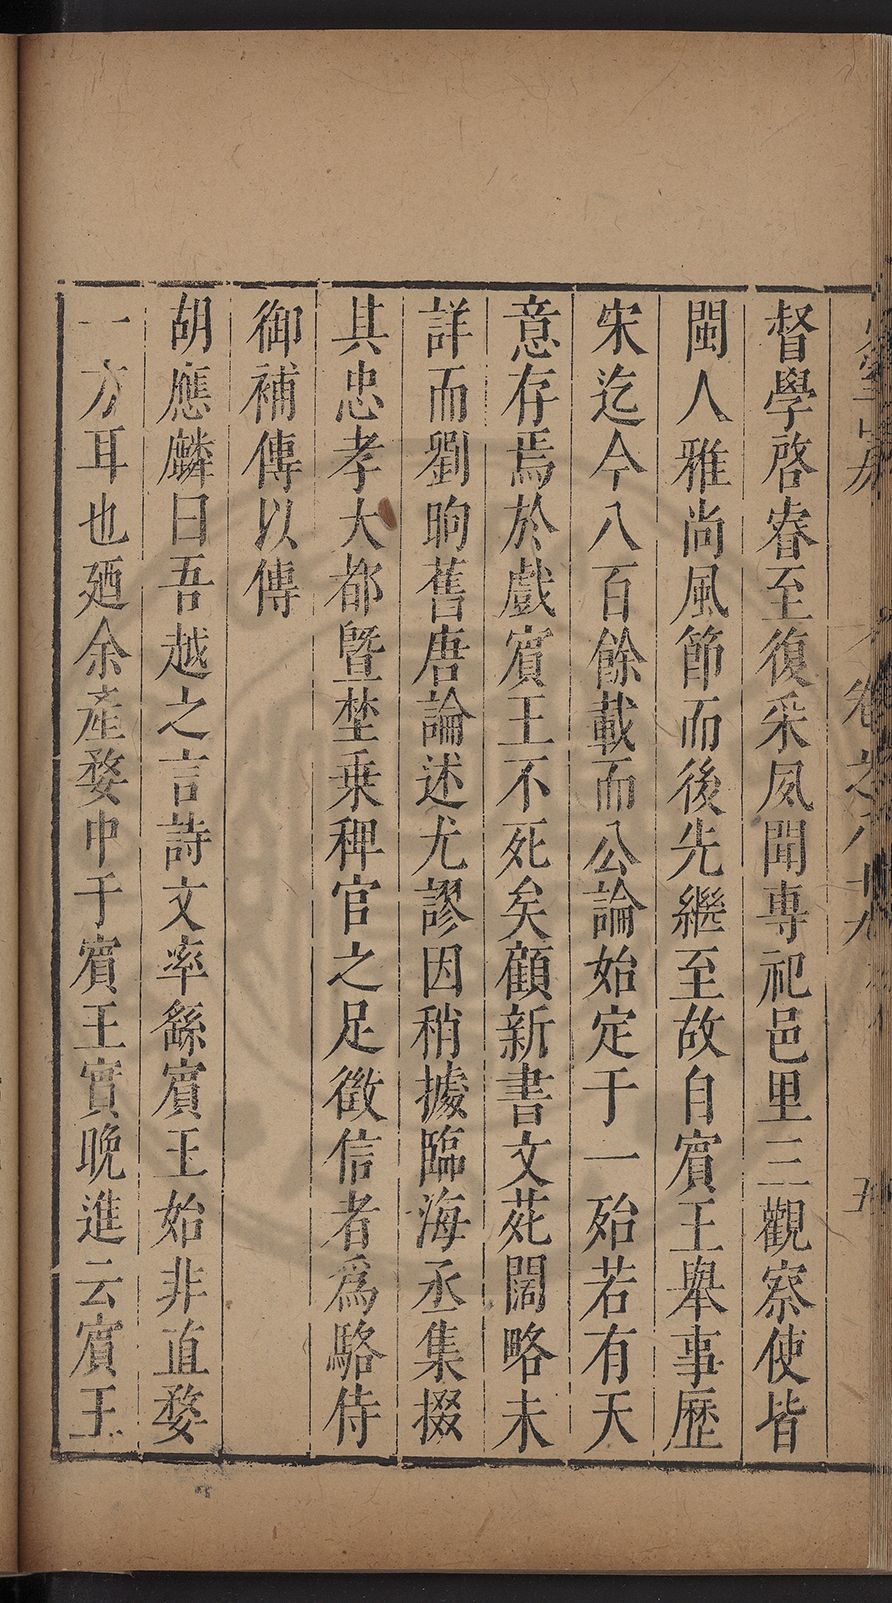 督學啓睿至復采風聞專祀邑里三觀察使皆
閩人雅尚風節而後先繼至故自賓王舉事歷
宋迄今八百餘載而公論始定于一殆若有天
意存焉於戲賓王不死矣顧新書文苑闊略未
詳而劉昫舊唐論述尤謬因稍據臨海丞集掇
其忠孝大都曁埜乗稗官之足徵信者爲駱侍
御補傳以傳
胡應麟曰吾越之言詩文率繇賓王始非直婺
一方耳也廼余產婺中于賓王實晚進云賓王